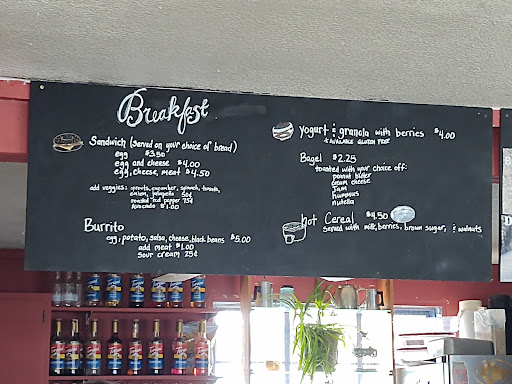 Breakfast
Sandwich (served on your choice of bread)
egg $3.50
egg and cheese $4.00
egg, cheese, meat $4.50
add veggies: sprouts, cucumber, spinach, tomato,
onion, jalapeño 50¢
roasted red pepper 75¢
avocado $1.00
Burrito
egg, potato, salsa, cheese, black beans $5.00
add meat $1.00
sour cream 25¢
yogurt & granola with berries $4.00
* AVAILABLE GLUTEN FREE
Bagel $2.25
toasted with your choice off:
peanut butter
cream cheese
jam
hummus
nutella
hot Cereal $4.50
served with milk, berries, brown sugar, & walnuts